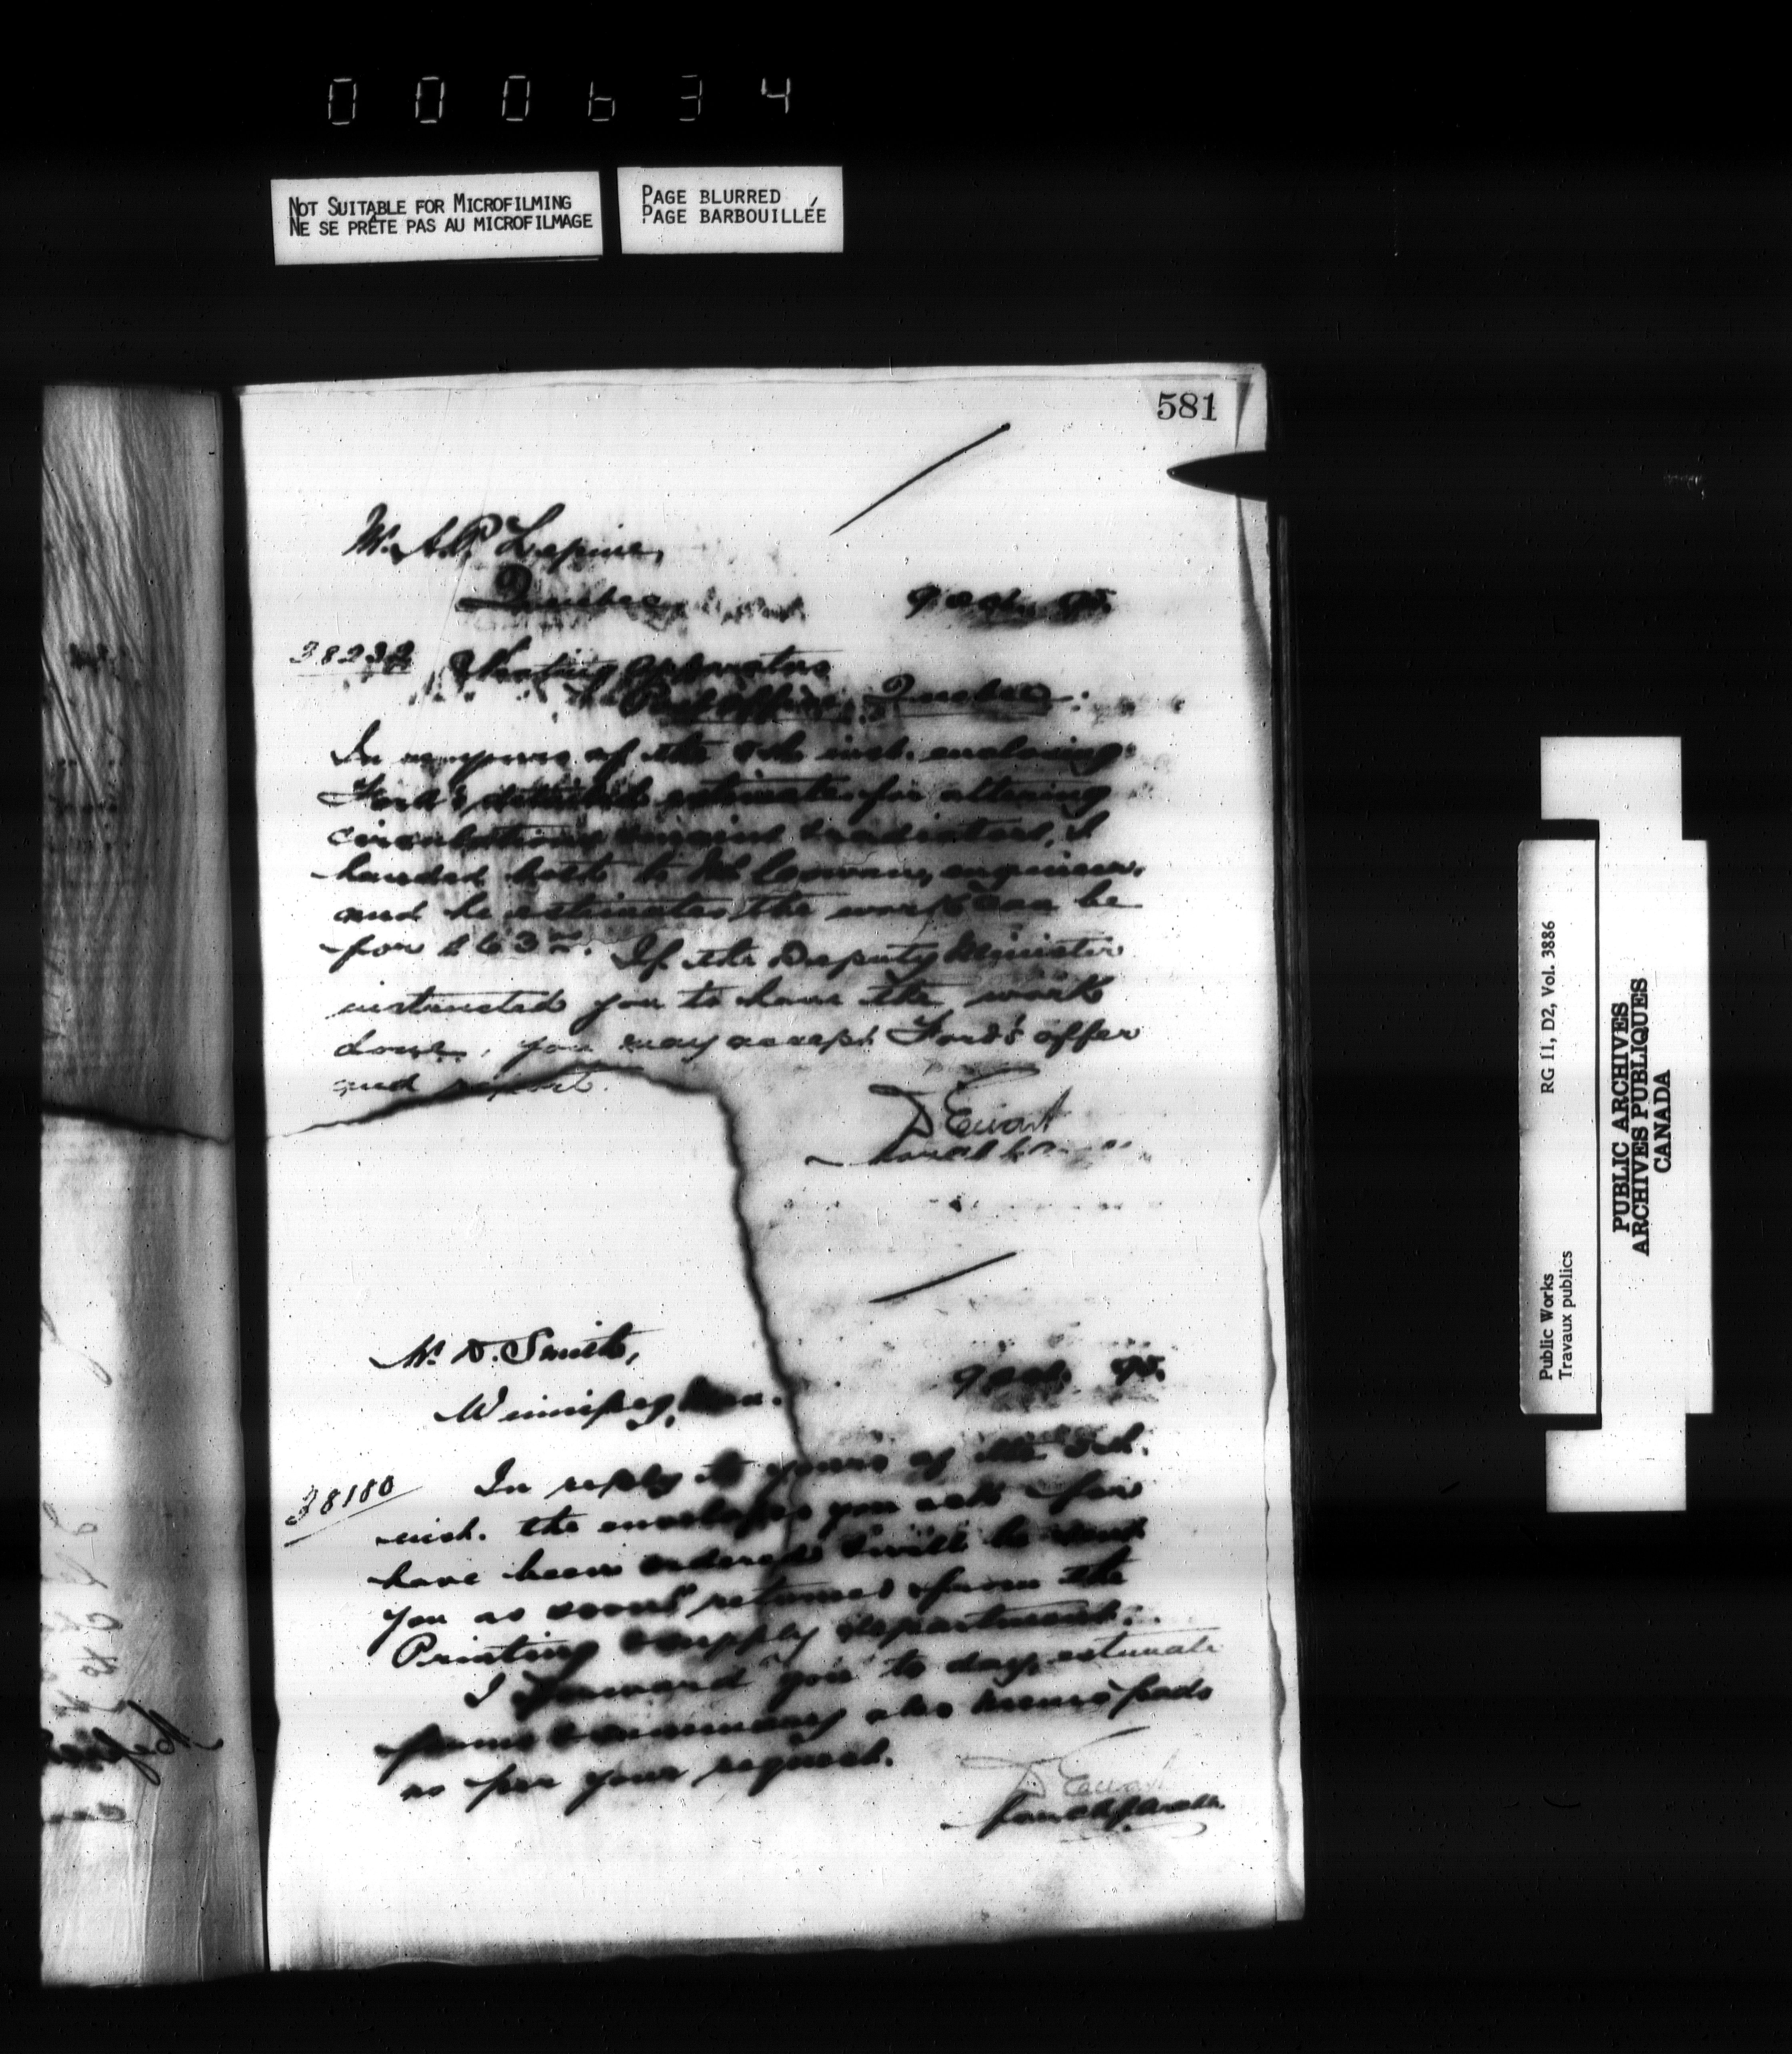 000634
NOT SUITABLE FOR MICROFILMING
NE SE PRÊTE PAS AU MICROFILMAGE
PAGE BLURRED
PAGE BARBOUILLÉE
581
Mr. A.P. Lepine,
Quebec
9 Oct. 95.
38232
Heating apparatus
Post Office, Quebec:
In re yours of the 8th inst. enclosing
Ford's detailed estimate for altering
circulations, mains & radiators, I
handed both to Mr. Cowan, engineer,
and he estimates the work can be
for If the Deputy Minister
instructed you to have the work
done, you may accept Ford's offer
and report.
D Ewart
Mr. D. Smith,
Winnipeg, Man.
9 Oct. 95.
38180
In reply to yours of the 5th.
inst. the envelopes you ask for
have been ordered & will be sent
you as soon as returned from the
Printing & supply department.
I forward you to day, estimate
forms & summary also memo pads
as per your request.
D Ewart
RG 11, D2, Vol. 3886
Public Works
Travaux publics
PUBLIC ARCHIVES
ARCHIVES PUBLIQUES
CANADA